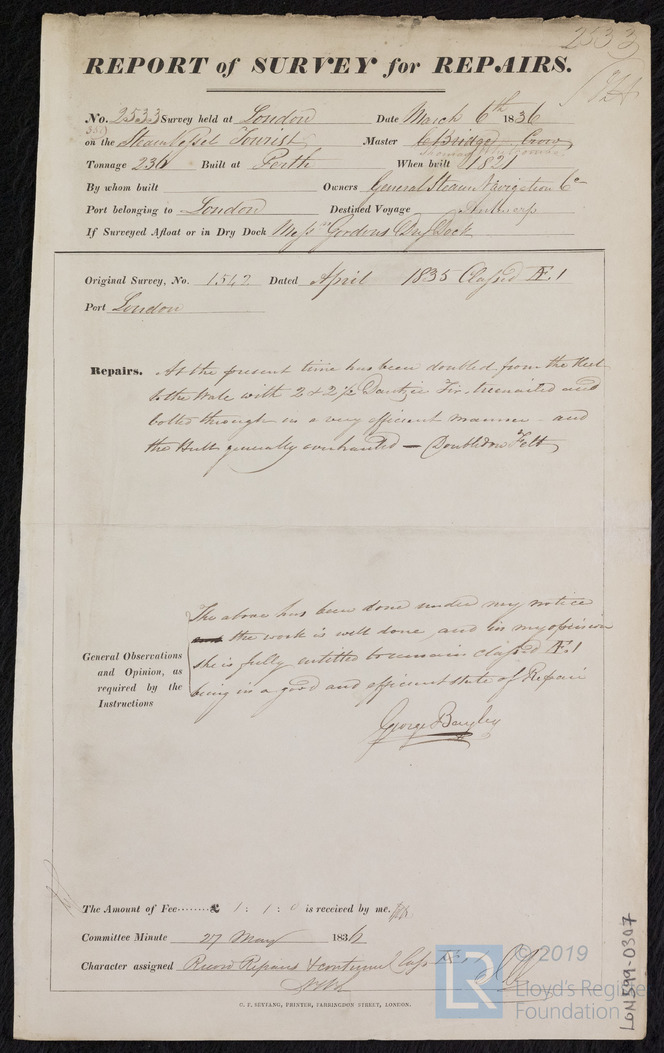 2533
REPORT of SURVEY for REPAIRS.
No. 2533 Survey held at London Date March 6th 1836
on the Steam Vessel Tourist Master C Bridge Crow
Tonnage 236 Built at Perth When built 1821
By whom built Owners General Steam Navigation Co
Port belonging to London Destined Voyage Antwerp
If Surveyed Afloat or in Dry Dock Messrs Gordons Dry Dock
Original Survey, No. 1542 Dated April 1835 Classed Æ1
Port London
Repairs. At the present time has been doubled from the Keel
to the Wale with 2 & 2½ Dantzic Fir, treenailed and
bolted through in a very efficient manner - and
the Hull generally overhauled — Doubled on Felt
The above has been done under my notice
the work is well done and in my opinion
she is fully entitled to remain classed Æ1
being in a good and efficient state of Repair
George Bayley
General Observations
and Opinion, as
required by the
Instructions
The Amount of Fee........£ 1 : 1 : 0 is received by me.
Committee Minute 27 May 1836
Character assigned Record Repairs & continued Class Æ1
C. F. SEYFANG, PRINTER, FARRINGDON STREET, LONDON.
LON599-0307
LR
© 2019
Lloyd's Register
Foundation